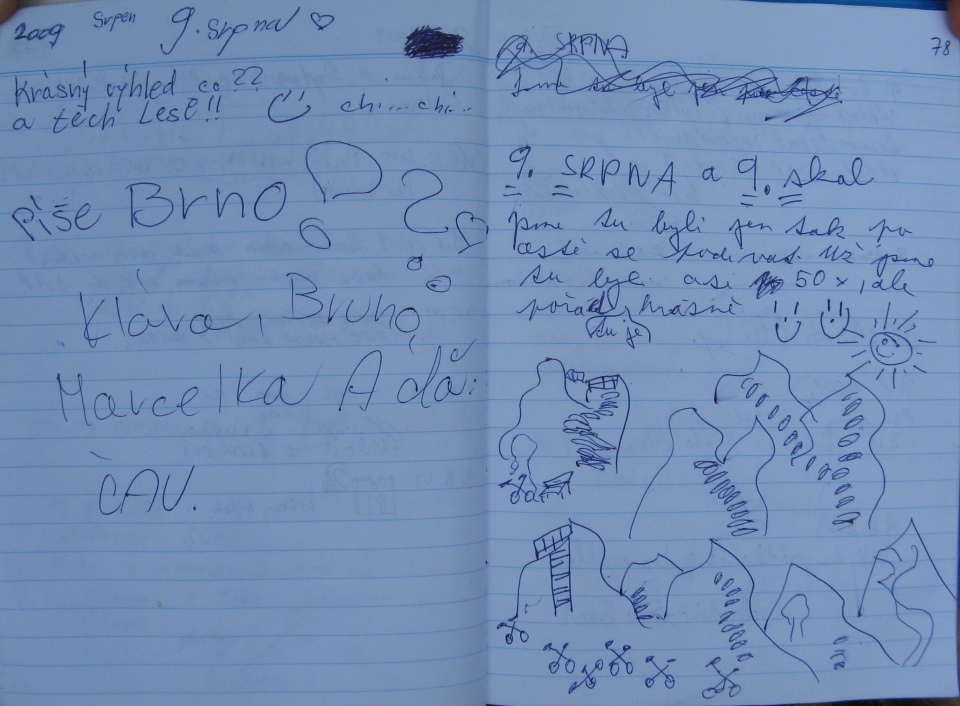 2009 Srpen 9. srpna
Krásný výhled co??
a těch lesů!! chi...chi..
píše Brno??
Klára, Bruno,
Marcelka Áďa:
ČAU.
78
9. SRPNA
Jsme tu byli jen
9. SRPNA a 9. skal
jsme tu byli jen tak po
cestě se podívat. Už jsme
tu byli asi 50x, ale
pořád krásně
tu je